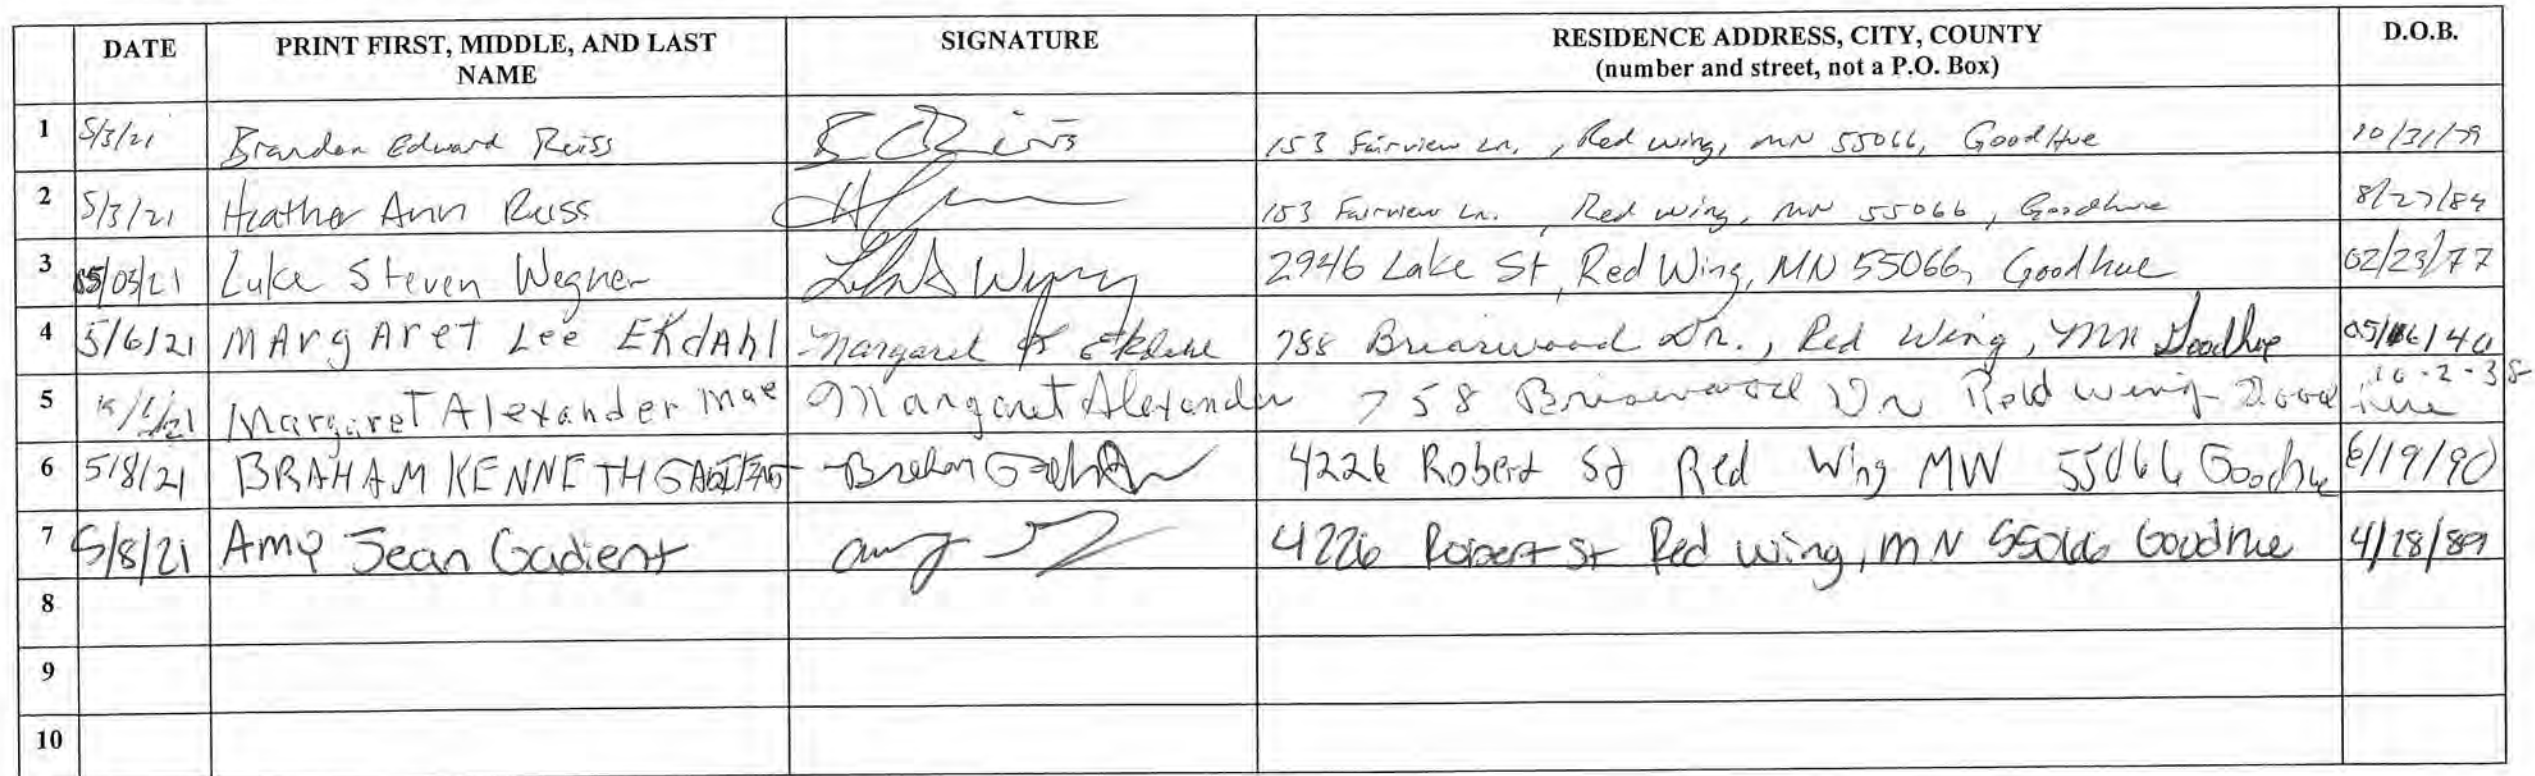 DATE PRINT FIRST, MIDDLE, AND LAST NAME SIGNATURE RESIDENCE ADDRESS, CITY, COUNTY (number and street, not a P.O. Box) D.O.B.
1 5/3/21 Brandon Edward Reiss 153 Fairview Ln., Red Wing, MN 55066, GoodHue 10/31/79
2 5/3/21 Heather Ann Reiss 153 Fairview Ln., Red Wing, MN 55066, Goodhue 8/27/84
3 05/03/21 Luke Steven Wegner 2946 Lake St, Red Wing, MN 55066, Goodhue 02/23/77
4 5/6/21 MArgAret Lee EKdAhl Margaret Ekdahl 788 Briarwood Dr., Red Wing, MN Goodhue 05/06/40
5 Margaret Alexander Mae Margaret Alexander 758 Briarwood Dr Red Wing Goodhue 10-2-38
6 5/8/21 BRAHAM KENNETH 4226 Robert St Red Wing MN 55066 Goodhue 6/19/90
7 5/8/21 Amy Jean Gadient Amy 4226 Robert St Red Wing, MN 55066 Goodhue 4/28/89
8
9
10